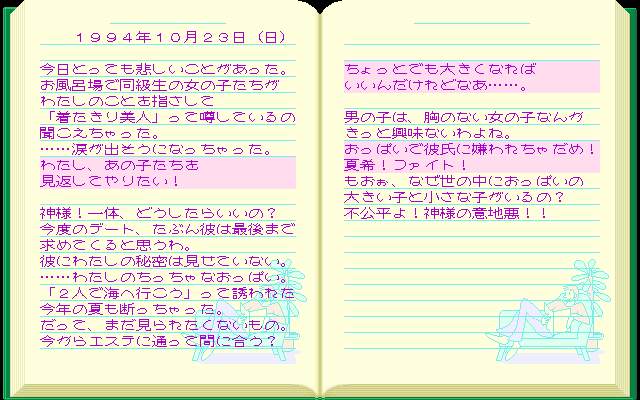 1994年10月23日（日）
今日とっても悲しいことがあった。
お風呂場で同級生の女の子たちが
わたしのことを指さして
「着たきり美人」って噂しているの
聞こえちゃった。
……涙が出そうになっちゃった。
わたし、あの子たちを
見返してやりたい！
神様！一体、どうしたらいいの？
今度のデート、たぶん彼は最後まで
求めてくると思うわ。
彼にわたしの秘密は見せていない。
……わたしのちっちゃなおっぱい。
「２人で海へ行こう」って誘われた
今年の夏も断っちゃった。
だって、まだ見られたくないもの。
今からエステに通って間に合う？
ちょっとでも大きくなれば
いいんだけれどなあ……。
男の子は、胸のない女の子なんか
きっと興味ないわよね。
おっぱいで彼氏に嫌われちゃだめ！
夏希！ファイト！
もおぉ、なぜ世の中におっぱいの
大きい子と小さな子がいるの？
不公平よ！神様の意地悪！！